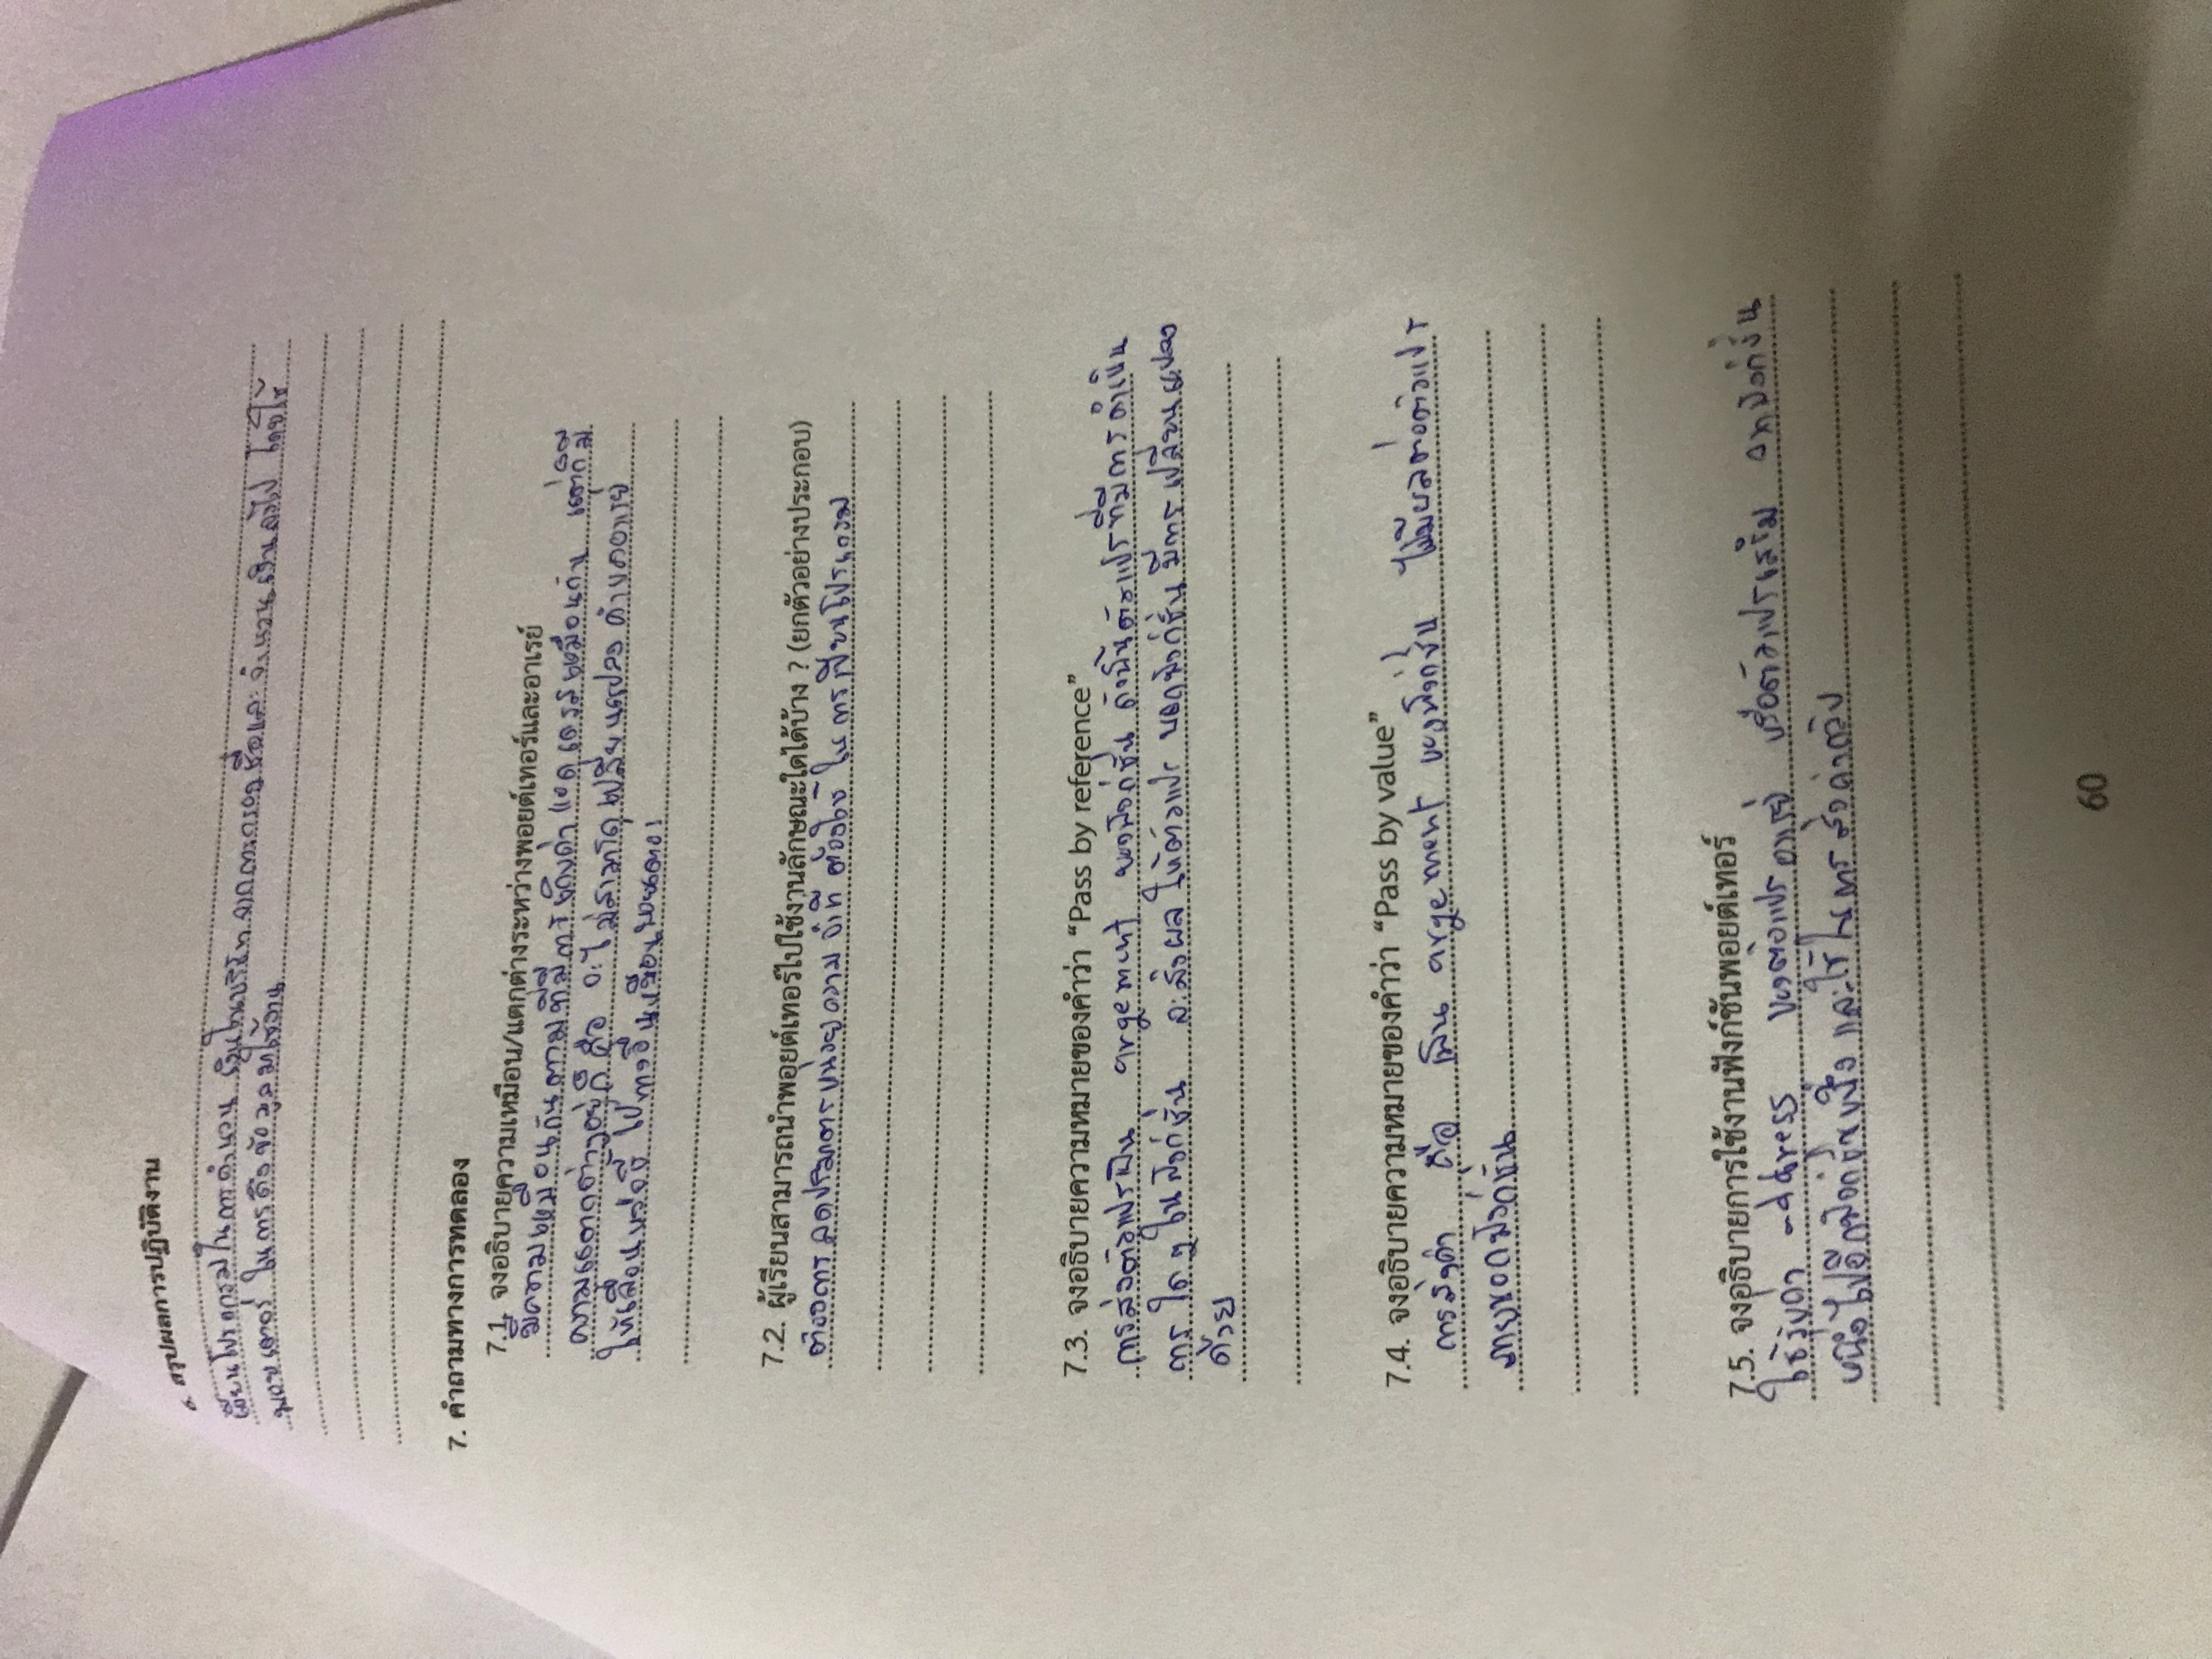 6. สรุปผลการปฏิบัติงาน
เขียนโปรแกรมในการคำนวน เงินในบริษัท จากการกรอก ชื่อและ จำนวน เงินลงไป โดยใช้
พอยเตอร์ ในการดึงข้อมูลมาใช้งาน
7. คำถามทางการทดลอง
7.1. จงอธิบายความเหมือน/แตกต่างระหว่างพอยต์เทอร์และอาเรย์
มีความเหมือนกันตามที่มีการ ค่า แอดเดรสเหมือนกัน แต่ก็มี
ความแตกต่างอยู่ก็ คือ จะไม่สามารถเปลี่ยนแปลง ค่า
ให้เลื่อน ชี้ ไปทางอื่นเหมือน
7.2. ผู้เรียนสามารถนำพอยต์เทอร์ไปใช้งานลักษณะใดได้บ้าง ? (ยกตัวอย่างประกอบ)
ต้องการ ลดปริมาตร หน่วยความ จำที่ ต้องใช้ ใน การเขียนโปรแกรม
7.3. จงอธิบายความหมายของคำว่า “Pass by reference”
การส่งตัวแปรเป็น argement ของฟังก์ชั่น ดังนั้นตัวแปรที่มีการดำเนิน
การ ใด ๆ ในฟังก์ชั่น จะส่งผล ให้ตัวแปร นอกฟังก์ชั่น มีการ เปลี่ยนแปลง
ด้วย
7.4. จงอธิบายความหมายของคำว่า “Pass by value”
การส่งค่า คือ เป็น argement ของฟังก์ชั่น ไม่มีผลต่อตัวแปร
ภายนอกฟังก์ชั่น
7.5. จงอธิบายการใช้งานฟังก์ชันพอยต์เทอร์
ใช้รับค่า address ของตัวแปร อาเรย์ หรือตัวแปร จากฟังก์ชั่น
หนึ่งไปอีกฟังก์ชั่นหนึ่ง และใช้ในการ ส่งค่ากลับ
60